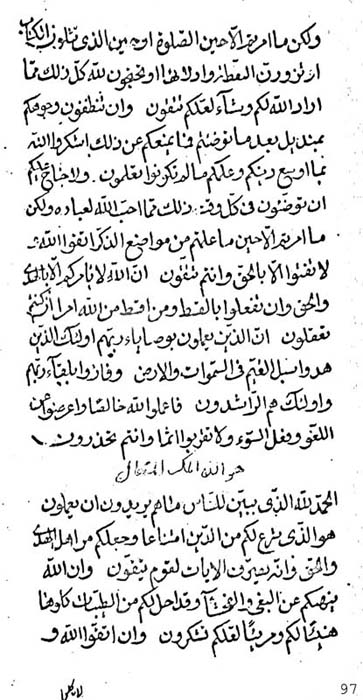 ولكن ما امرتم الا حين الصلوة او حين الذى تتلون الكتاب
او تزورن النقطة او اولادها او تحضرون لله كل ذلك مما
اراد الله لكم وشاء لعلكم تتقون وان تنظفون وجوهكم
بمنديل بعد ما توضئتم فما يمنعكم عن ذلك اشكروا الله
بما اوسع ربكم وعلمكم ما لم تكونوا تعلمون ولا جناح عليكم
ان توضئون فى كل وقت ذلك مما احب الله لعباده ولكن
ما امرتم الا حين ما علمتم من مواضع الذكر اتقوا الله
لا تفتوا الا بالحق وانتم تتقون ان الله لا يامركم الا بالعدل
والحق وان تفعلوا بالقسط ومن اقسط من الله امرا ان كنتم
تعقلون ان الذين يعملون بوصايا ربهم اولئك الذين
هدوا سبل القيم فى السموات والارض وفازوا بلقاء ربهم
واولئك هم الراشدون فاعملوا لله خالصا واعرضوا عن
اللغو وفعل السوء ولا تقربوا اثما وانتم تحذرون
هو الله الملك المتعال
الحمد لله الذى يبين للناس ما هم يريدون ان يعملون
هو الذى شرع لكم من الدين امتناعا وجعلكم من اهل الهدى
والحق وانه يصرف الايات لقوم يتقون وان الله
ينهيكم عن البغى والفحشاء وقد احل لكم من الطيبات كلوها
هنيئا لكم ومريئا لعلكم تشكرون وان اتقوا الله و
97